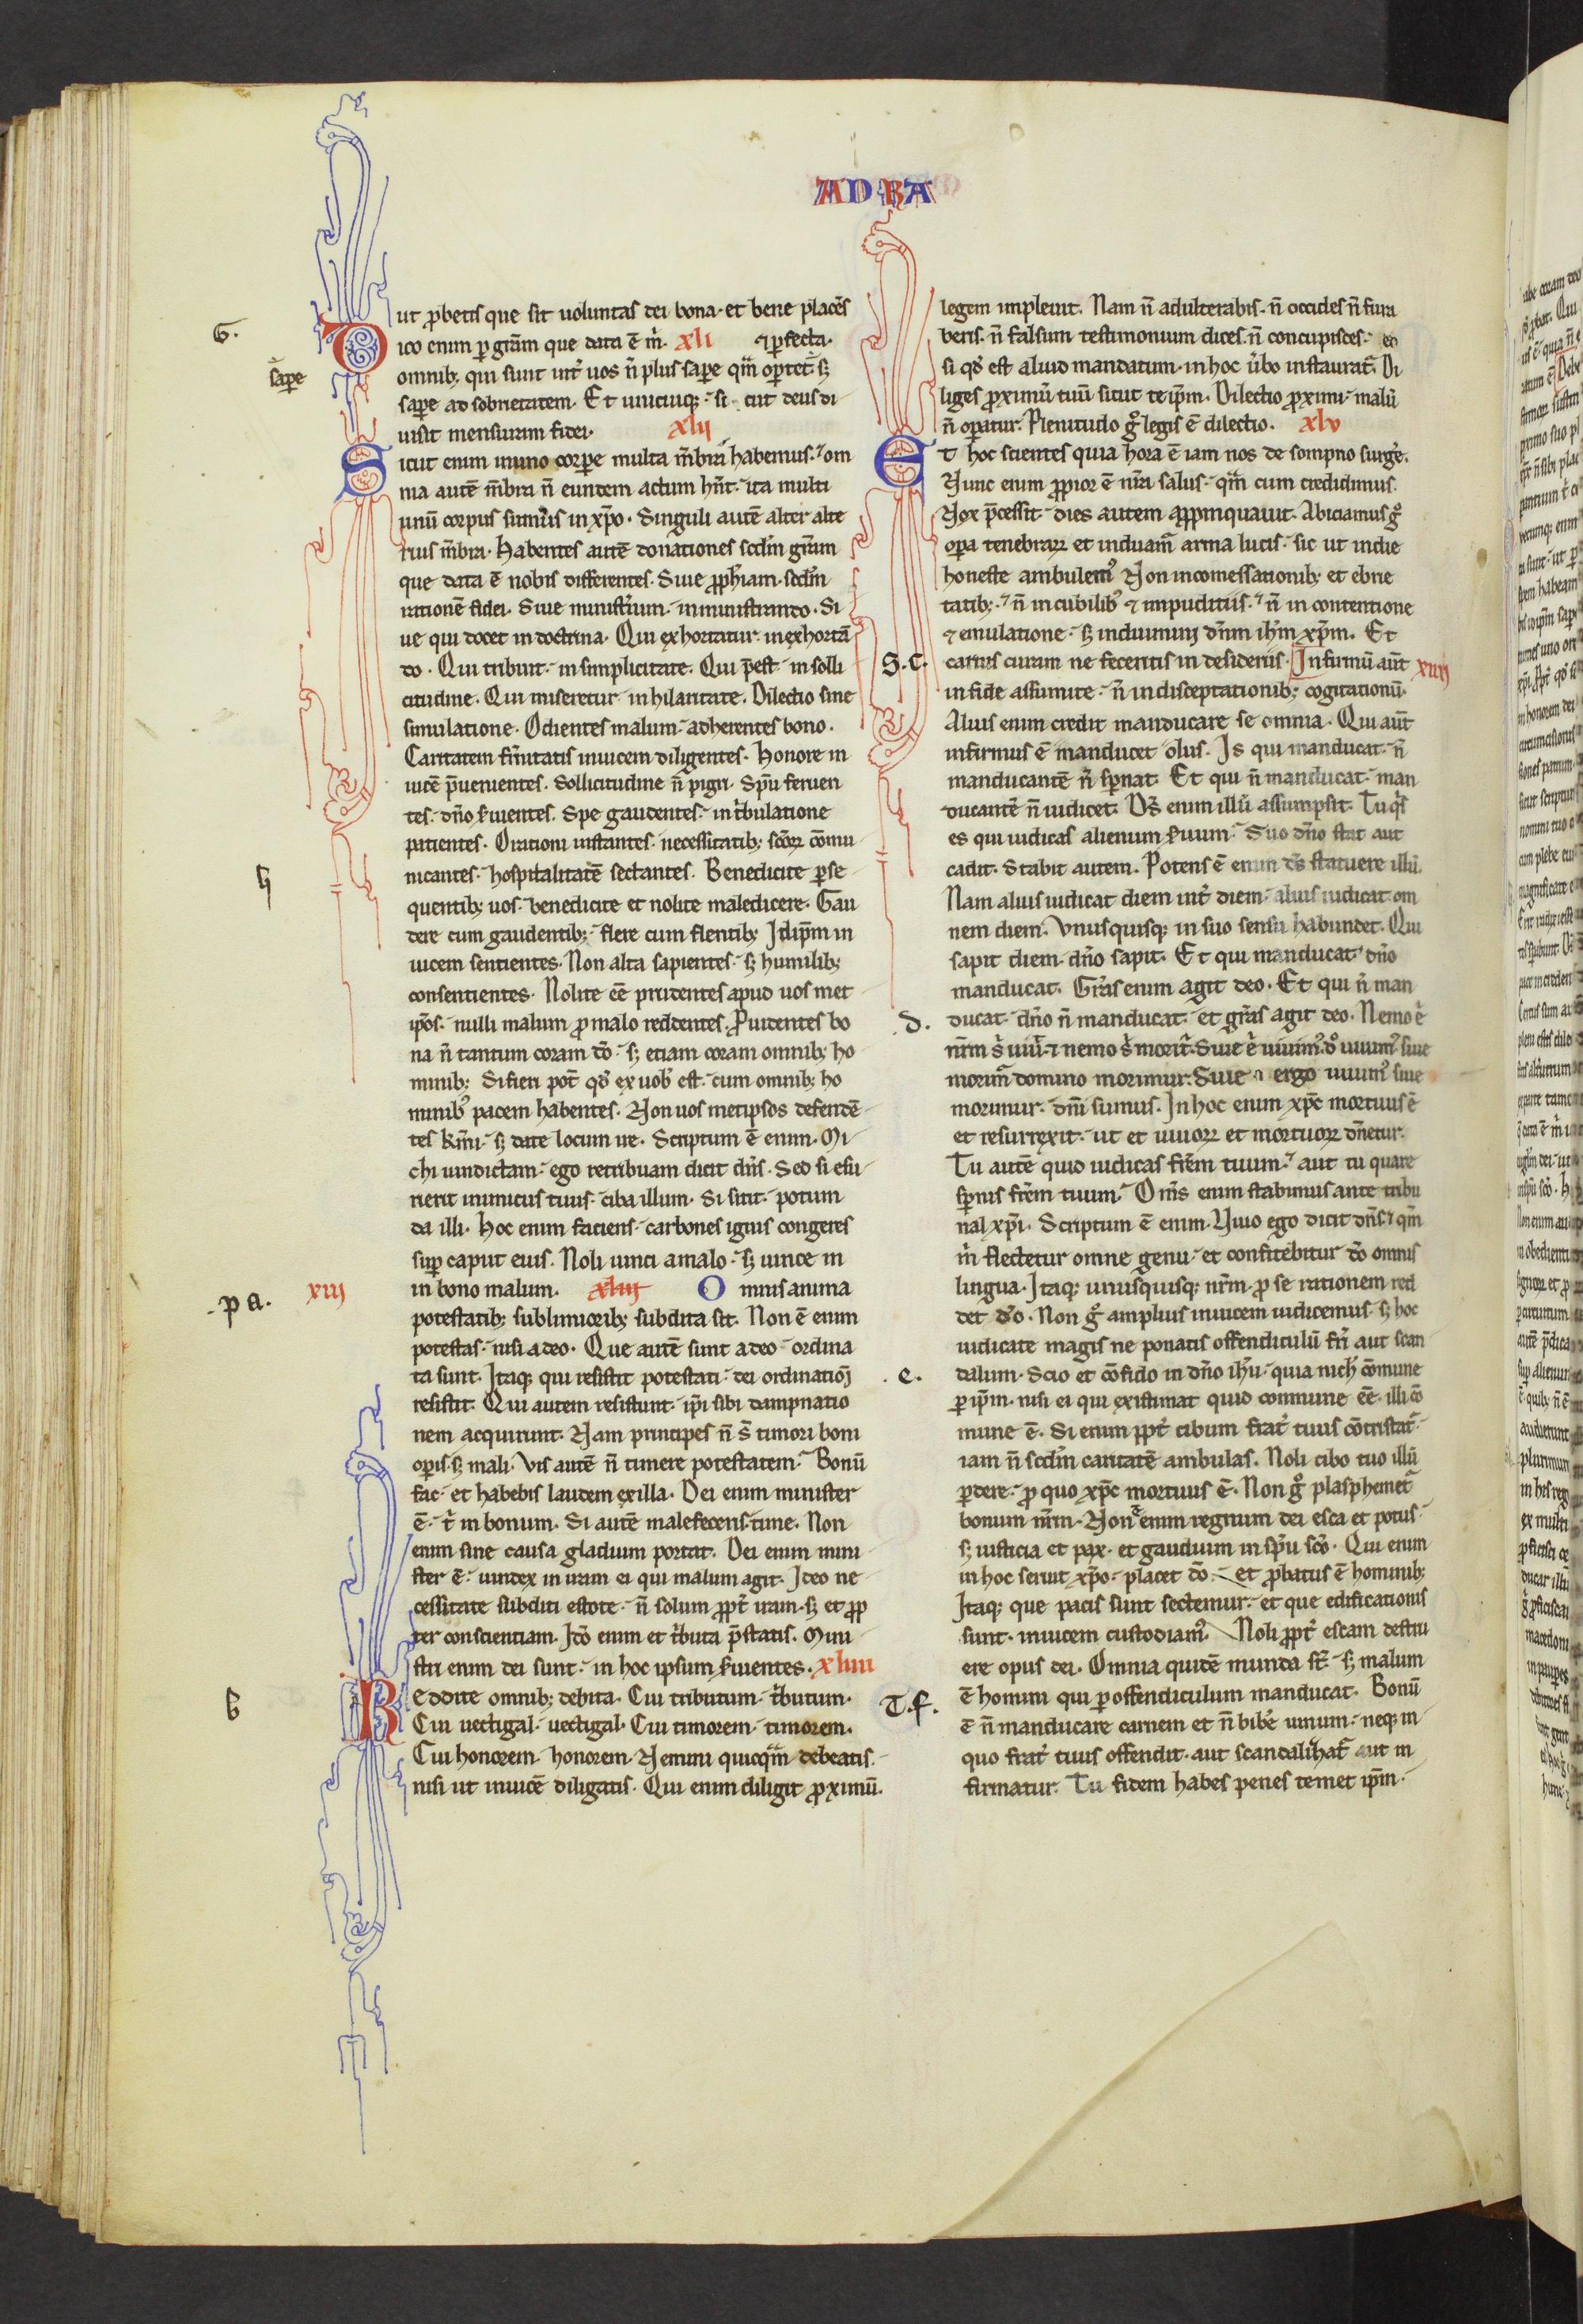 AD RA
ut ꝓbetis que sit uoluntas dei bona· et bene placēs
Dico enim ꝑ gr̄am que data ē m̓· xli ⁊ ꝑfecta·
omnib; qui sunt int̓ uos n̄ plus saꝑe qm̄ oꝑtet sꝫ
saꝑe ad sobrietatem· Et unicuiq; si cut deus di
uisit mensuram fidei· xlii
Sicut enim in uno corꝑe multa m̄bra habemus· ⁊ om
nia autē m̄bra n̄ eundem actum hn̄t· ita multi
unū corpus sumus in xp̄o· Singuli autē alter alte
rius m̄bra· habentes autē donationes scd̄m gr̄am
que data ē nobis differentes· Siue ꝓph̄iam· scd̄m
rationē fidei· Siue minist̓ium· in ministrando· Si
ue qui docet in doctrina· Qui exhortatur· in exhortā
do· Qui tribuit· in simplicitate· Qui p̄est· in solli
citudine· Qui miseretur· in hilaritate· Dilectio sine
simulatione· Odientes malum· adherentes bono·
Caritatem fr̄nitatis inuicem diligentes· honore in
uicē p̄uenientes· Sollicitudine n̄ pigri· Sp̄u feruen
tes· dn̄o s̓uientes· Spe gaudentes· in t̓bulatione
patientes· Orationi instantes· necessitatib; sc̄oꝝ cōmu
nicantes· hospitalitatē sectantes· Benedicite ꝑse
quentib; uos· benedicite et nolite maledicere· Gau
dere cum gaudentib; flere cum flentib; Idip̄m in
uicem sentientes· Non alta sapientes· sꝫ humilib;
consentientes· Nolite eē prudentes apud uos met
ip̄os· nulli malum ꝓ malo reddentes· Puidentes bo
na n̄ tantum coram dō· sꝫ etiam coram omnib; ho
minib; Si fieri pot̄ qd̓ ex uob̓ est· cum omnib; ho
minib; pacem habentes· Non uos metipsos defendē
tes km̄i· sꝫ date locum ire· Scriptum ē enim· Mi
chi uindictam· ego retribuam dicit dn̄s· Sed si esu
rierit inimicus tuus· ciba illum· Si sitit· potum
da illi· hoc enim faciens· carbones ignis congeres
suꝑ caput eius· Noli uinci a malo· sꝫ uince in
in bono malum· xliii Omnis anima
potestatib; sublimiorib; subdita sit· Non ē enim
potestas· nisi a deo· Que autē sunt a deo· ordina
ta sunt· Itaq; qui resistit potestati· dei ordinatioī
resistit· Qui autem resistunt· ip̄i sibi dampnatio
nem acquirunt· Nam principes n̄ s̄t timori boni
oꝑis· sꝫ mali· Vis autē n̄ timere potestatem· Bonū
fac· et habebis laudem ex illa· Dei enim minister
ē· t̓ in bonum· Si autē malefeceris· time· Non
enim sine causa gladium portat· Dei enim mini
ster ē· uindex in iram ei qui malum agit· Ideo ne
cessitate subditi estote· n̄ solum ꝓpt̓ iram· sꝫ et ꝓp
ter conscientiam· Idō enim et t̓buta p̄statis· Mini
stri enim dei sunt· in hoc ipsum s̓uientes· xliiii
Reddite omnib; debita· Cui tributum· t̓butum·
Cui uectigal· uectigal· Cui timorem· timorem·
Cui honorem· honorem· Nemini quicqm̄ debeatis·
nisi ut inuicē diligatis· Qui enim diligit ꝓximū·
G.
saꝑe
h
pa.
xiii
b
legem impleuit· Nam n̄ adulterabis· n̄ occides n̄ fura
beris· n̄ falsum testimonium dices· n̄ concupisces· et
si qd̓ est aliud mandatum· in hoc u̓bo instaurat̄· Di
liges ꝓximū tuū sicut te ip̄m· Dilectio ꝓximi· malū
n̄ oꝑatur· Plenitudo g̊ legis ē dilectio· xlv
Et hoc scientes quia hora ē iam nos de sompno surge̓·
Nunc enim ꝓpior ē nr̄a salus· qm̄ cum credidimus·
Nox p̄cessit· dies autem apꝓpinquauit· Abiciamus g̊
oꝑa tenebraꝝ et induam̄ arma lucis· sic ut in die
honeste ambulem̓ Non in comessationib; et ebrie
tatib; ⁊ n̄ in cubilib̓ ⁊ impuditiis· ⁊ n̄ in contentione
⁊ emulatione· sꝫ induimini dn̄m ih̄m xp̄m· Et
carnis curam ne feceritis in desideriis· Infirmū aūt xiiii
in fide assumite· n̄ in disceptationib; cogitationū·
Alius enim credit manducare se omnia· Qui aūt
infirmus ē manducet olus· Is qui manducat· n̄
manducantē n̄ sꝑnat· Et qui n̄ manducat· man
ducantē n̄ iudicet· Ds̄ enim illū assumpsit· Tu q̓s
es qui iudicas alienum s̓uum· Suo dn̄o stat aut
cadit· Stabit autem· Potens ē enim ds̄ statuere illū·
Nam alius iudicat diem int̓ diem· alius iudicat om
nem diem· Vnusquisq; in suo sensu habundet· Qui
sapit diem· dn̄o sapit· Et qui manducat· dn̄o
manducat· Gr̄as enim agit deo· Et qui n̄ man
ducat· dn̄o n̄ manducat· et gr̄as agit deo· Nemo e̓
nr̄m s̓ uiu̓· ⁊ nemo s̓ morit̓· Siue e̓ uiuim̓· dō uiuim̓· siue
morim̄ domino morimur· Siue ergo uiuim̓ siue
morimur· dn̄i sumus· In hoc enim xp̄c mortuus ē
et resurrexit· ut et uiuoꝝ et mortuoꝝ dn̄etur·
Tu autē quid iudicas fr̄em tuum· aut tu quare
sꝑnis fr̄em tuum· Om̄s enim stabimus ante tribu
nal xp̄i· Scriptum ē enim· Viuo ego dicit dn̄s· qm̄
m̓ flectetur omne genu· et confitebitur dō omnis
lingua· Itaq; unusquisq; nr̄m· ꝓ se rationem red
det do̓· Non g̊ amplius inuicem iudicemus· sꝫ hoc
iudicate magis ne ponatis offendiculū fr̄i aut scan
dalum· Scio et cōfido in dn̄o ih̄u· quia nich̓ cōmune
ꝑ ip̄m· nisi ei qui existimat quid commune eē· illi cō
mune ē· Si enim ꝓpt̓ cibum frat̓ tuus cōtristat̄
iam n̄ scd̄m caritatē ambulas· Noli cibo tuo illū
ꝑdere· ꝓ quo xp̄c mortuus ē· Non g̊ plasphemet̄
bonum nr̄m· Non ē enim regnum dei esca et potus·
sꝫ iusticia et pax· et gaudium in sp̄u sc̄o· Qui enim
in hoc seruit xp̄o· placet dō· et ꝓbatus ē hominib;
Itaq; que pacis sunt sectemur· et que edificationis
sunt· inuicem custodiam̓· Noli ꝓpt̓ escam destru
ere opus dei· Omnia quidē munda st̄· sꝫ malum
ē homini qui ꝑ offendiculum manducat· Bonū
ē n̄ manducare carnem et n̄ bibe̓ uinum· neq; in
quo frat̓ tuus offendit· aut scandalizat̄ aut in
firmatur· Tu fidem habes penes temet ip̄m·
S.C.
d.
e.
T.f.